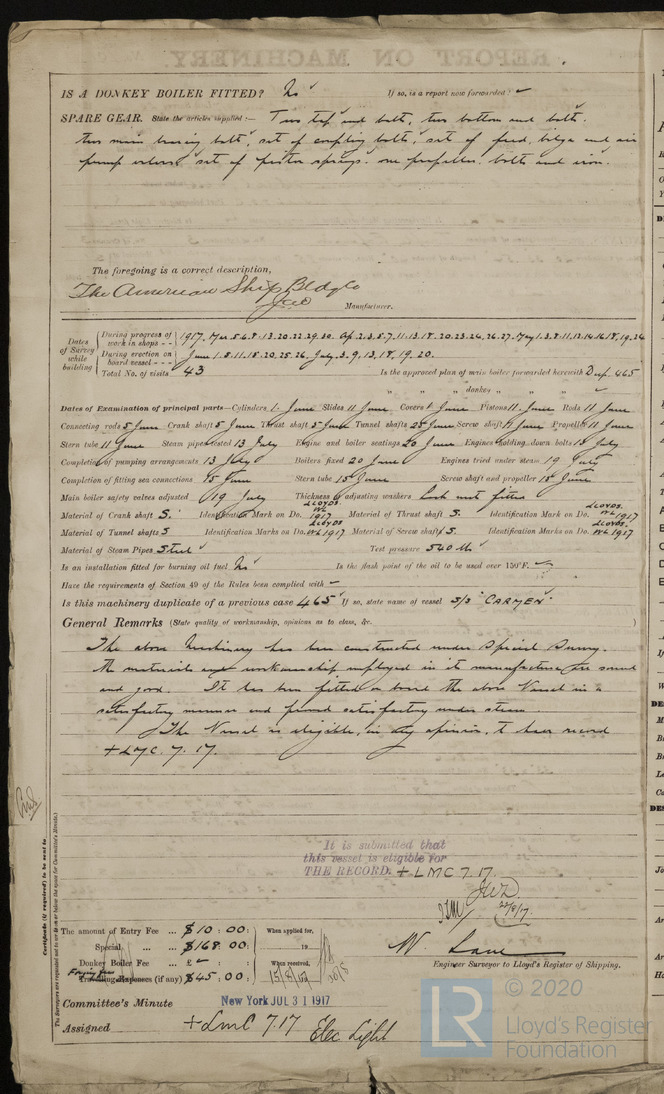 IS A DONKEY BOILER FITTED? No If so, is a report now forwarded?
SPARE GEAR. State the articles supplied:— Two top end bolts, two bottom end bolts.
two main bearing bolts, set of coupling bolts, set of feed, bilge and air
pump valves, set of piston springs. one propeller. bolts and iron.
The foregoing is a correct description,
The American Ship Bldg Co
Manufacturer.
Dates of Survey while building
During progress of work in shops - - 1917. Mar. 5. 6. 8. 13. 20. 22. 29. 30. Ap. 2. 3. 5. 7. 11. 13. 18. 20. 23. 24. 26. 27. May 1. 3. 8. 11. 12. 14. 16. 18. 19. 24
During erection on board vessel - - - June 1. 5. 11. 15. 20. 25. 26. July. 3. 9. 13. 18. 19. 20.
Total No. of visits 43
Is the approved plan of main boiler forwarded herewith Dup. 465
" " " donkey " "
Dates of Examination of principal parts—Cylinders 1. June Slides 11 June Covers 1 June Pistons 11. June Rods 11 June
Connecting rods 5 June Crank shaft 5 June Thrust shaft 5 June Tunnel shafts 25 June Screw shaft 11 June Propeller 11 June
Stern tube 11 June Steam pipes tested 13 July Engine and boiler seatings 20 June Engines holding down bolts 18 July
Completion of pumping arrangements 13 July Boilers fixed 20 June Engines tried under steam 19 July
Completion of fitting sea connections 15 June Stern tube 15 June Screw shaft and propeller 15 June
Main boiler safety valves adjusted 19 July Thickness of adjusting washers Lock nut fitted
Material of Crank shaft S. Identification Mark on Do. LLOYDS. WL 1917 Material of Thrust shaft S. Identification Mark on Do. LLOYDS. WL 1917
Material of Tunnel shafts S Identification Marks on Do. LLOYDS WL 1917 Material of Screw shafts S. Identification Marks on Do. LLOYDS. WL 1917
Material of Steam Pipes Steel Test pressure 540 lbs
Is an installation fitted for burning oil fuel No Is the flash point of the oil to be used over 150°F.
Have the requirements of Section 49 of the Rules been complied with
Is this machinery duplicate of a previous case 465 If so, state name of vessel S/S "CARMEN".
General Remarks (State quality of workmanship, opinions as to class, &c.
The above Machinery has been constructed under Special Survey.
The materials and workmanship employed in its manufacture are sound
and good. It has been fitted on board the above Vessel in a
satisfactory manner and proved satisfactory under steam
The Vessel is eligible, in my opinion, to have record
+ LMC. 7. 17.
It is submitted that
this vessel is eligible for
THE RECORD. + LMC 7.17.
22/8/17
Certificate (if required) to be sent to
The Surveyors are requested not to write on or below the space for Committee's Minute.
The amount of Entry Fee ... $ 10 : 00 : When applied for,
Special ... ... $ 168 00 : 19
Donkey Boiler Fee ... £ When received,
Travelling Expenses (if any) $ 45 : 00 :
W. Lane
Engineer Surveyor to Lloyd's Register of Shipping.
Committee's Minute New York JUL 31 1917
Assigned + LMC 7.17 Elec Light
© 2020
LR
Lloyd's Register
Foundation